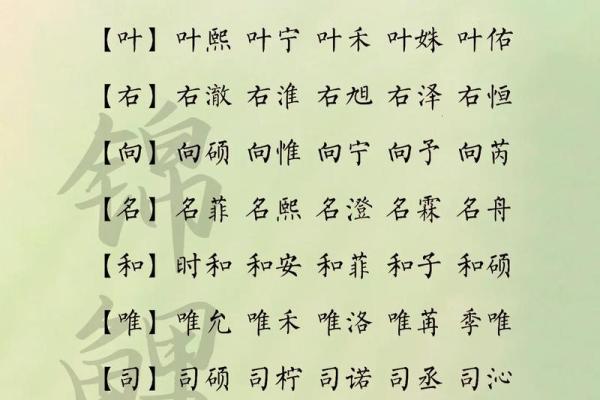 【叶】叶熙 叶宁 叶禾 叶姝 叶佑
【右】右澈 右淮 右旭 右泽 右恒
【向】向硕 向惟 向宁 向予 向芮
【名】名菲 名熙 名澄 名霖 名舟
【和】时和 和安 和菲 和子 和硕
【唯】唯允 唯禾 唯洛 唯苒 季唯
【司】司硕 司柠 司诺 司丞 司沁
锦
鲤